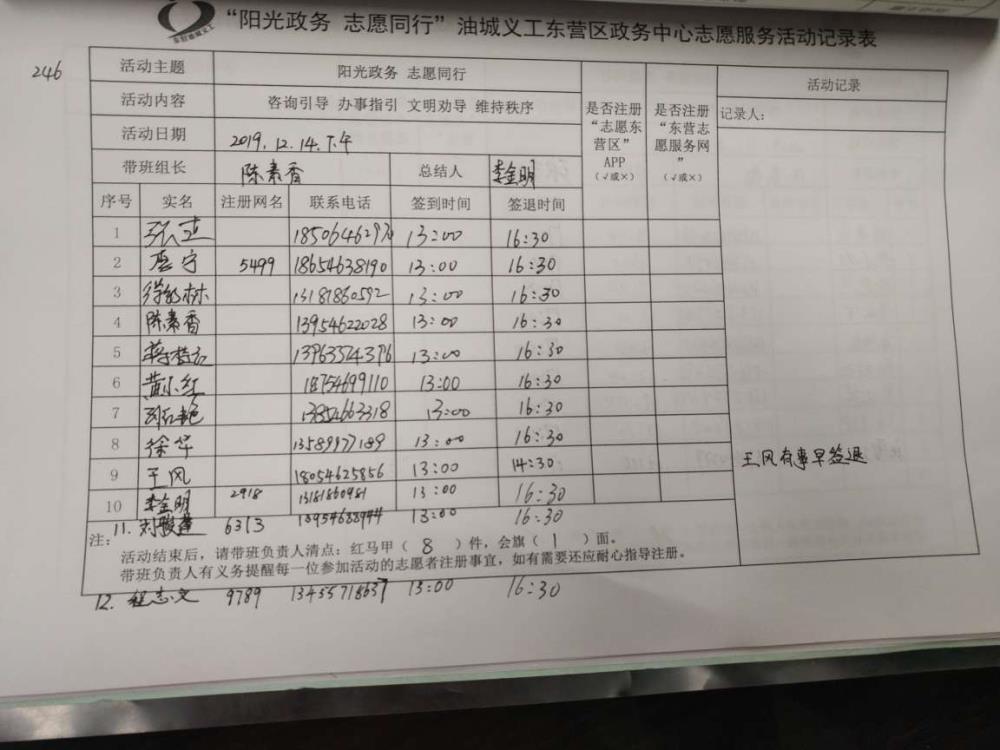 “阳光政务 志愿同行”油城义工东营区政务中心志愿服务活动记录表
246
活动主题 阳光政务 志愿同行 是否注册“志愿东营区”APP（√或×） 是否注册“东营志愿服务网”（√或×） 活动记录
活动内容 咨询引导 办事指引 文明劝导 维持秩序 记录人：
活动日期 2019.12.14.下午
带班组长 陈素香 总结人 李金明
序号 实名 注册网名 联系电话 签到时间 签退时间
1 13:00 16:30
2 唐宁 5499 18654638190 13:00 16:30
3 13181860592 13:00 16:30
4 陈素香 13954622028 13:00 16:30
5 13963524376 13:00 16:30
6 黄小红 18754699110 13:00 16:30
7 13854663318 13:00 16:30
8 徐华 13589977189 13:00 16:30
9 王风 18054625856 13:00 14:30 王风有事早签退
10 李金明 2918 13181860981 13:00 16:30
11. 6313 13:00 16:30
注：
活动结束后，请带班负责人清点：红马甲（ 8 ）件，会旗（ 1 ）面。
带班负责人有义务提醒每一位参加活动的志愿者注册事宜，如有需要还应耐心指导注册。
12. 程志文 9789 13455718637 13:00 16:30